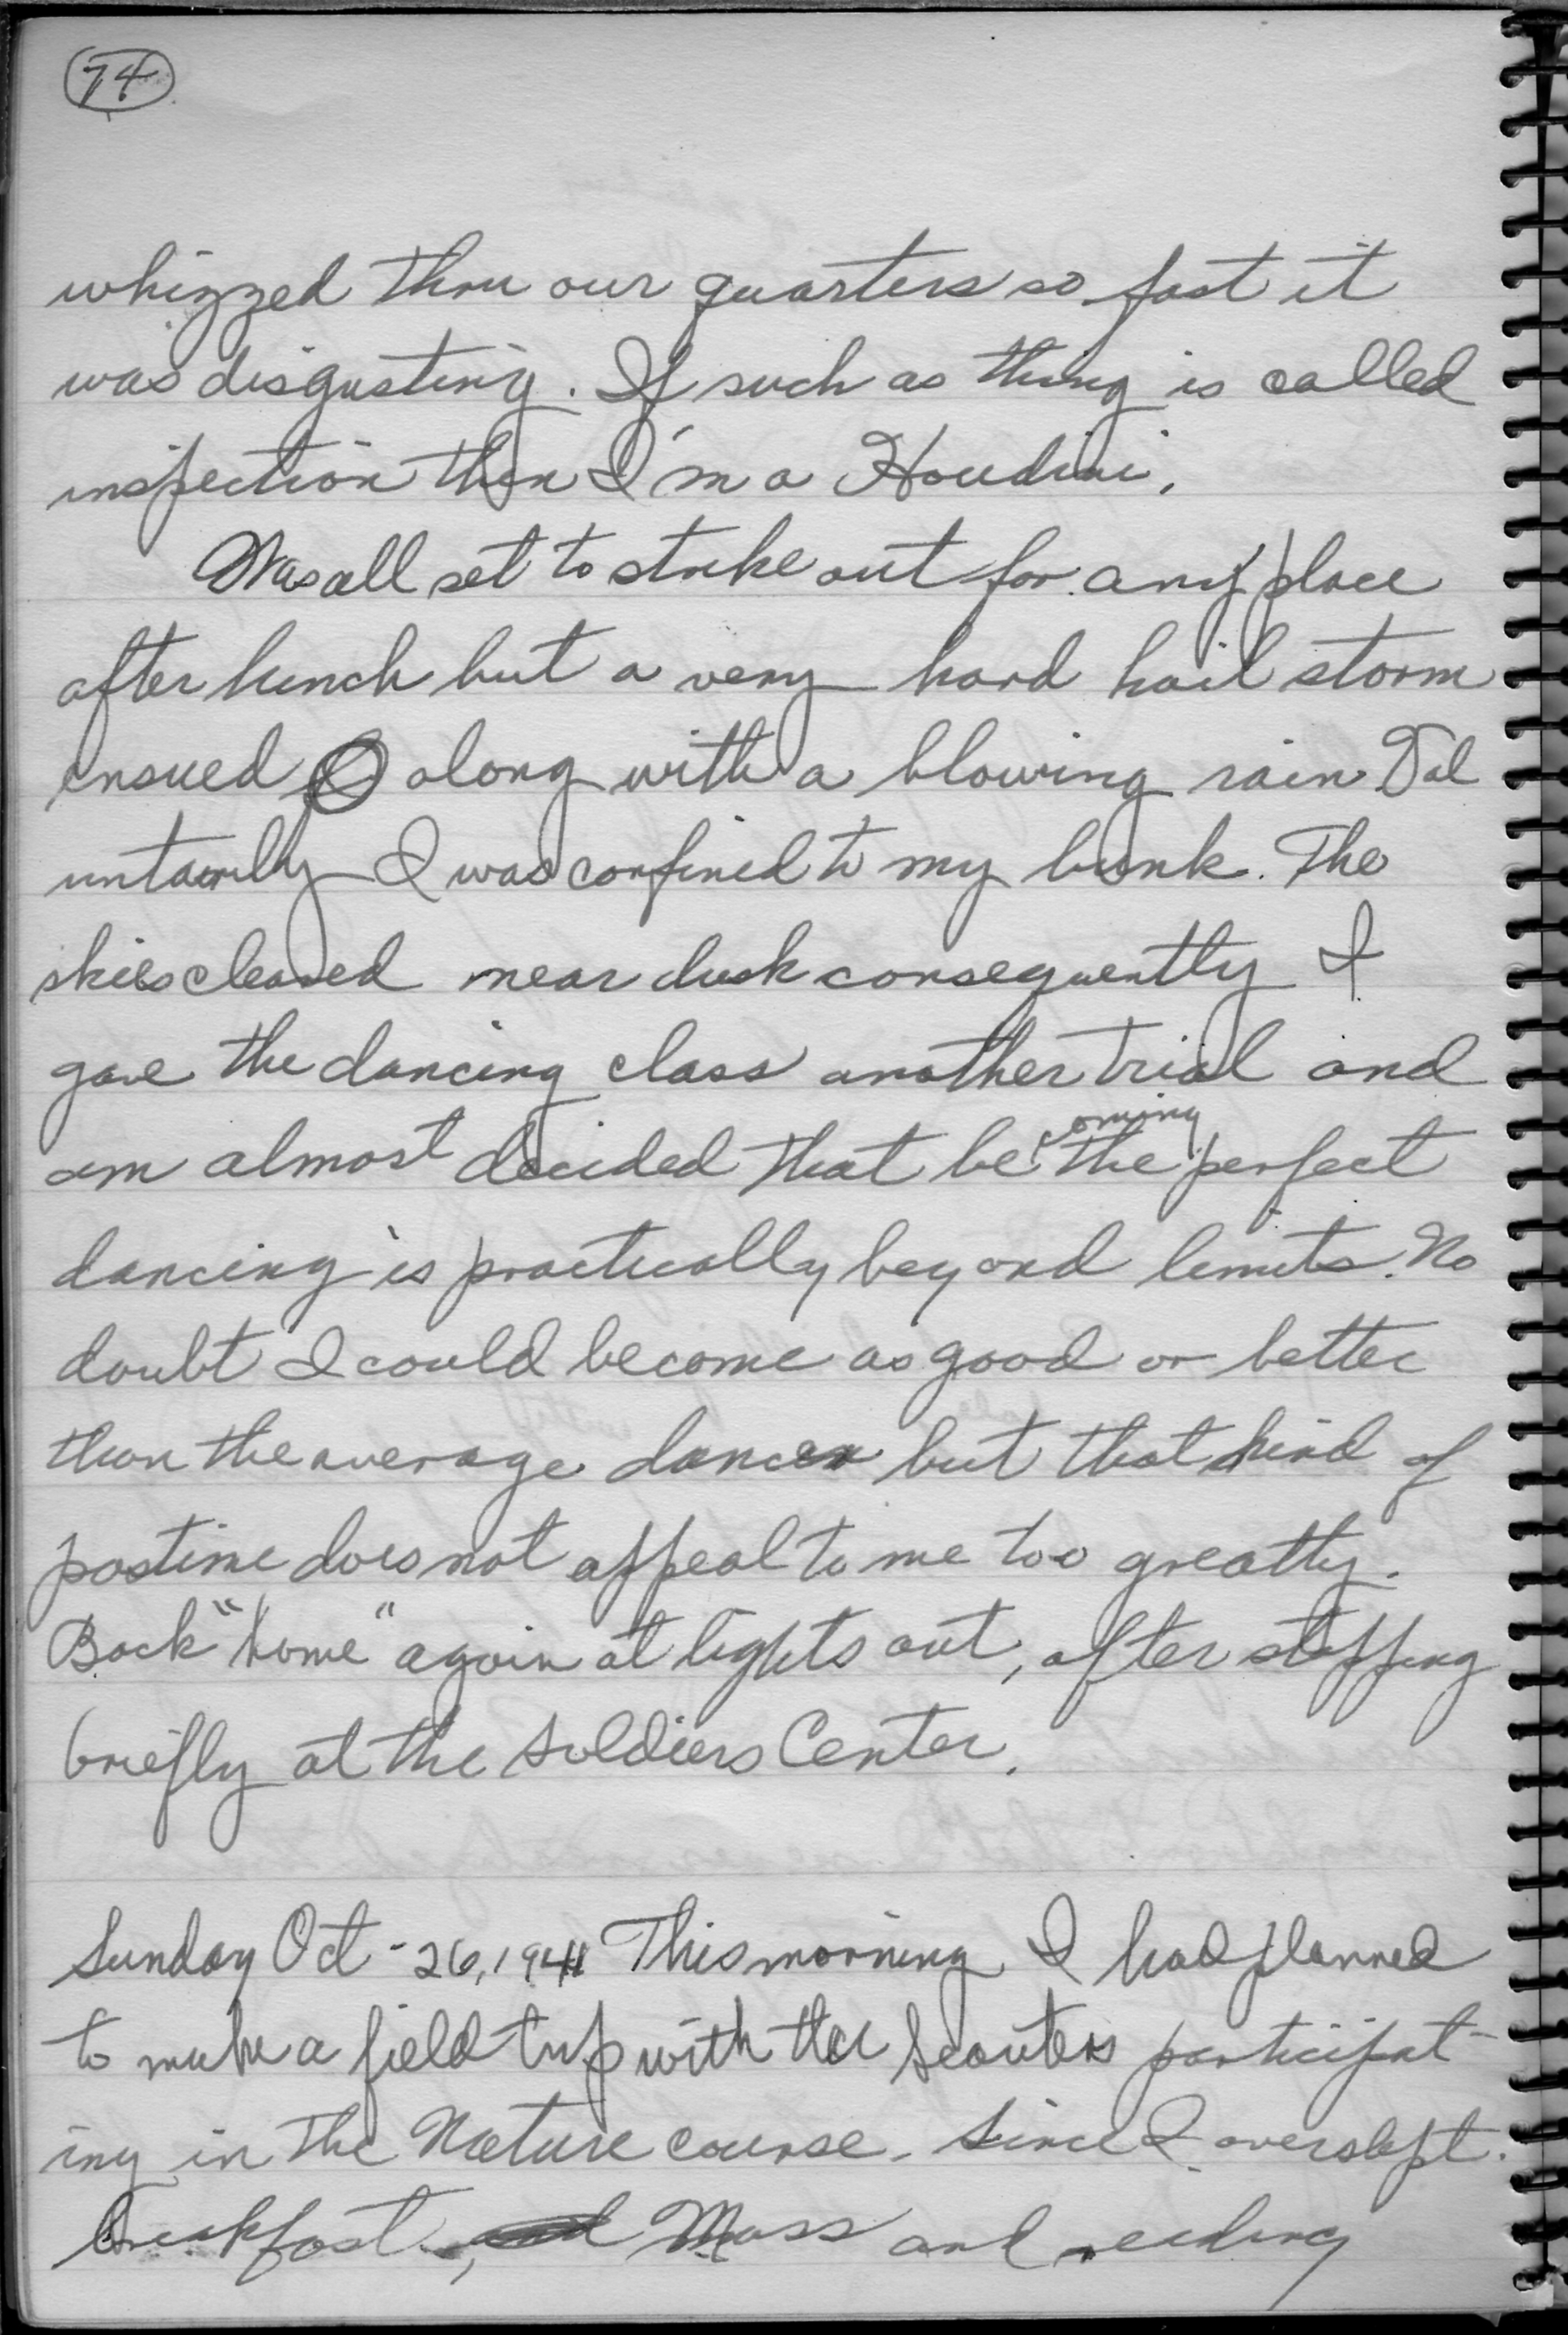 74
whizzed thru our quarters so fast it
was disgusting. If such as thing is called
inspection then I'm a Houdini.
Was all set to strike out for any place
after lunch but a very hard hail storm
ensued along with a blowing rain Vol
untarily I was confined to my bunk. The
skies cleared near dusk consequently I
gave the dancing class another trial and
am almost decided that be coming the perfect
dancing is practically beyond limits. No
doubt I could become as good or better
than the average dancer but that kind of
pastime does not appeal to me too greatly.
Back "home" again at lights out, after stopping
briefly at the Soldiers Center.
Sunday Oct - 26, 1941 This morning I had planned
to make a field trip with the Scouters participat-
ing in the Nature course. Since I overslept
breakfast, Mass and needing